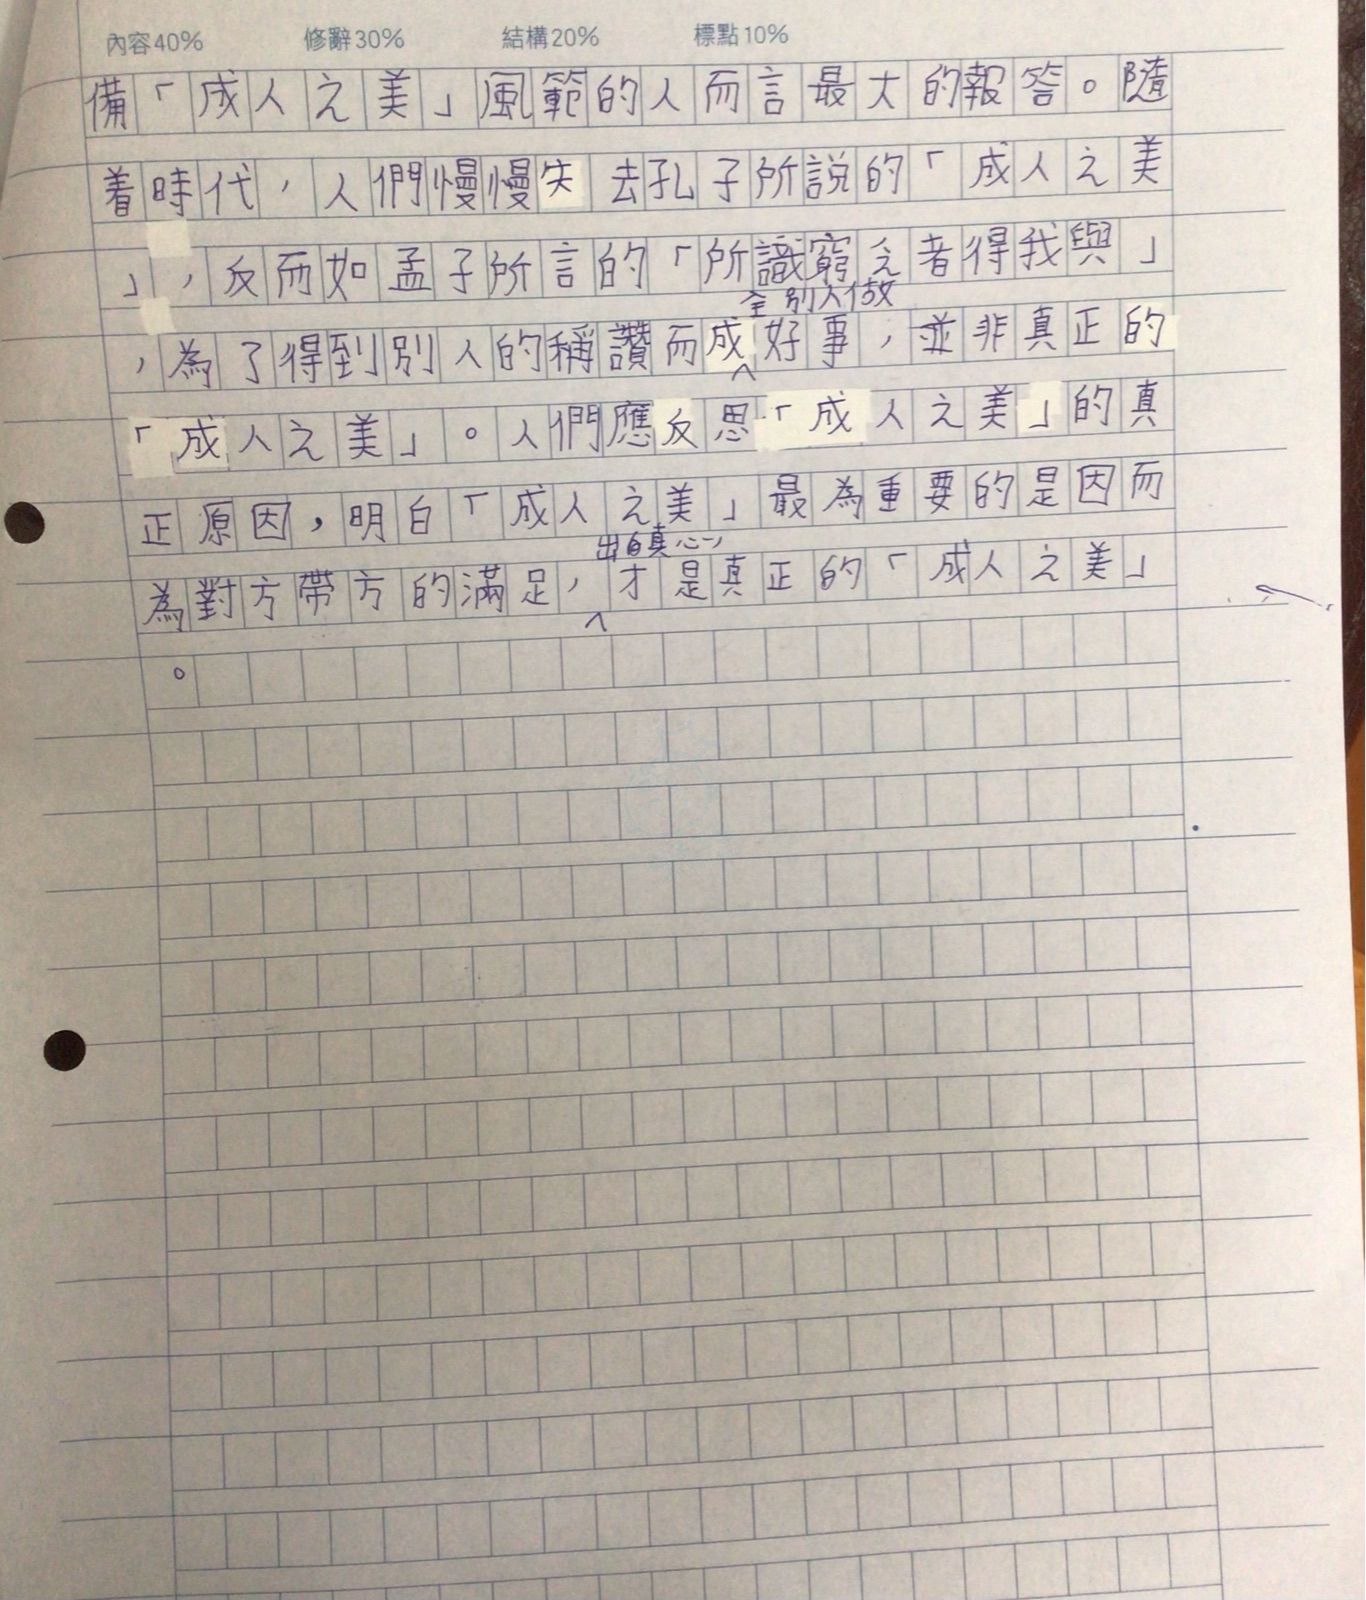 內容40% 修辭30% 結構20% 標點10%
備「成人之美」風範的人而言最大的報答。隨
着時代，人們慢慢失去孔子所説的「成人之美
」，反而如孟子所言的「所識窮乏者得我與」
全別人做
，為了得到別人的稱讚而成好事，並非真正的
「成人之美」。人們應反思「成人之美」的真
正原因，明白「成人之美」最為重要的是因而
出自真心，
為對方帶方的滿足，才是真正的「成人之美」
。